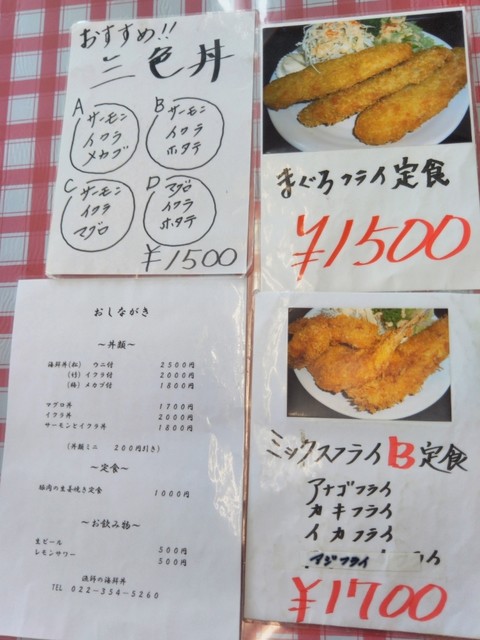 おすすめ!!
三色丼
A サーモン
イクラ
メカブ
B サーモン
イクラ
ホタテ
C サーモン
イクラ
マグロ
D マグロ
イクラ
ホタテ
¥1500
まぐろフライ定食
¥1500
おしながき
～丼類～
海鮮丼(松) ウニ付 2500円
(竹) イクラ付 2000円
(梅) メカブ付 1800円
マグロ丼 1700円
イクラ丼 2000円
サーモンとイクラ丼 1800円
(丼類ミニ 200円引き)
～定食～
豚肉の生姜焼き定食 1000円
～お飲み物～
生ビール 500円
レモンサワー 500円
漁師の海鮮丼
TEL 022-354-5260
ミックスフライB定食
アナゴフライ
カキフライ
イカフライ
アジフライ
¥1700